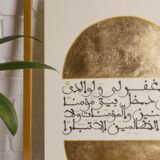 اغفر لي ولوالدي
دخل بيتي مؤمنا
والمؤمنات ولا
الظلمين إلا تبارا